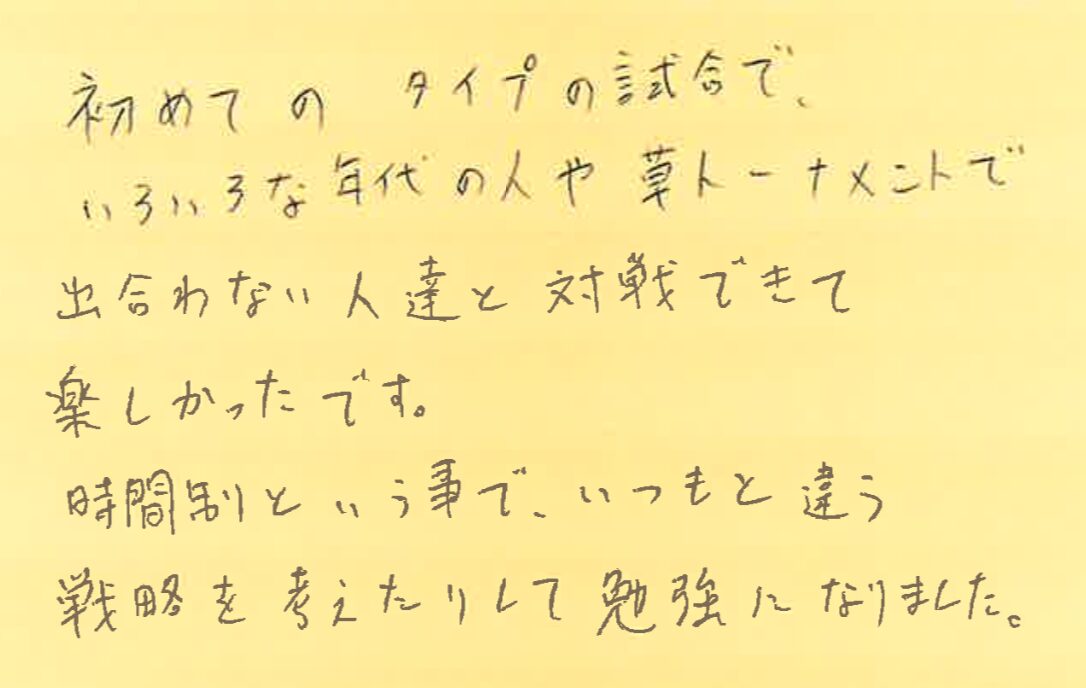 初めての タイプの試合で、
いろいろな年代の人や草トーナメントで
出合わない人達と対戦できて
楽しかったです。
時間制という事で、いつもと違う
戦略を考えたりして勉強になりました。